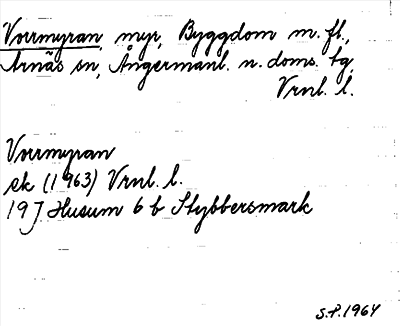 Vorrmyran, myr, Byggdom m. fl.,
Arnäs sn, Ångermanl. n. doms. tg,
Vrnl. l.
Vorrmyran
ek (1963) Vrnl. l.
19 J Husum 6 b Stybbersmark
S.P. 1964